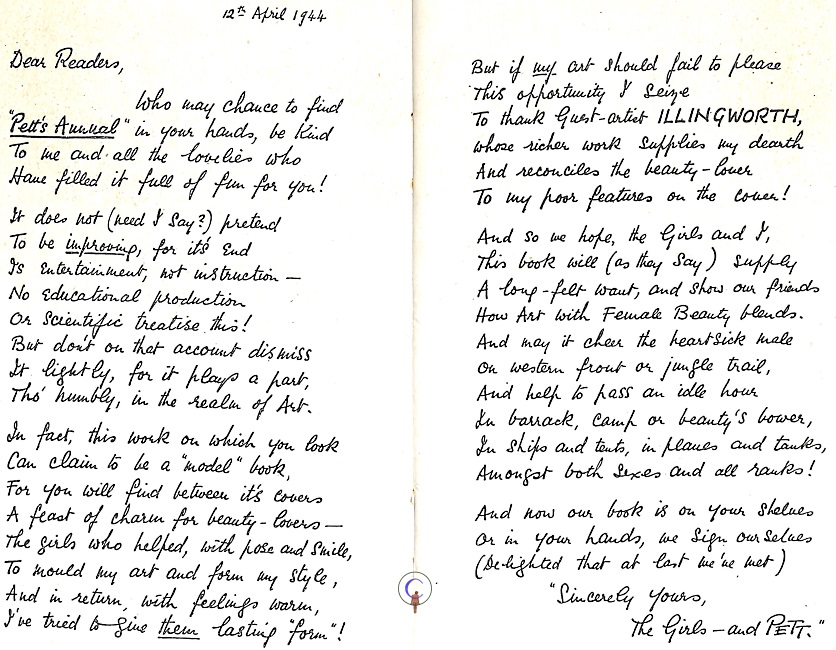 12th April 1944
Dear Readers,
Who may chance to find
"Pett's Annual" in your hands, be kind
To me and all the lovelies who
Have filled it full of fun for you!
It does not (need I say?) pretend
To be improving, for it's end
Is Entertainment, not instruction —
No Educational production
Or Scientific treatise this!
But don't on that account dismiss
It lightly, for it plays a part,
Tho' humbly, in the realm of Art.
In fact, this work on which you look
Can claim to be a "model" book,
For you will find between it's covers
A feast of charm for beauty-lovers —
The girls who helped, with pose and smile,
To mould my art and form my style,
And in return, with feelings warm,
I've tried to give them lasting "form"!
But if my art should fail to please
This opportunity I seize
To thank Guest-artist ILLINGWORTH,
whose richer work supplies my dearth
And reconciles the beauty-lover
To my poor features on the cover!
And so we hope, the Girls and I,
This book will (as they say) supply
A long-felt want, and show our friends
How Art with Female Beauty blends.
And may it cheer the heartsick male
On western front or jungle trail,
And help to pass an idle hour
In barrack, camp or beauty's bower,
In ships and tents, in planes and tanks,
Amongst both sexes and all ranks!
And now our book is on your shelves
Or in your hands, we sign ourselves
(De-lighted that at last we've met)
"Sincerely yours,
The Girls — and PETT."
C